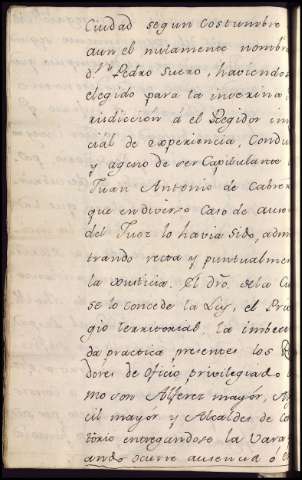 Ciudad segun costumbre
aun el nulamente nombra
d.ⁿ Pedro Suero, haviendo
elegido para la interina
risdiccion á el Regidor
cial de experiencia, Condu
y ageno de ser Capitulante
Juan Antonio de Cabrer
que en diverso Caso de ause
del Juez lo havia sido, adm
trando recta y puntualmen
la Justicia. El dro. de la Ciu
se lo concede la Ley, el Pri
gio territorial, la imbete
da practica, presentes los Re
dores de oficio privilegiado
mo son Alferez mayór, Alg
cil mayór y Alcaldes de
torio entregandose la Vara
ando ocurre ausencia ó